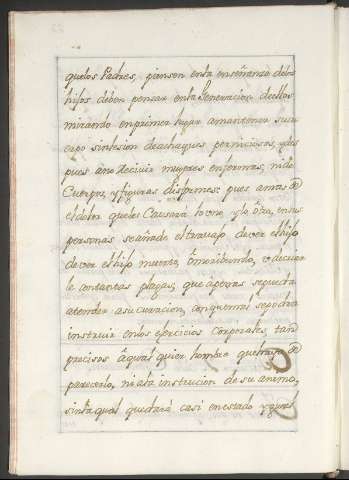 quelos Padres, piensen enla enseñanza delos
hijos deben pensar enla Generacion deellos
mirando enprimer lugar amantener su cu
erpo sinlesion deachaques perniciosos, y des
pues ano decivir mugeres enfermas, ni de
Cuerpos, y figuras disformes: pues amas de
el dolor queles Causará lo uno, y lo ôtro, ensus
personas seañade, el travajo de ver el hijo
de ver el hijo muerto, ô moribundo, u
le contantas plagas, que apenas sepueda
atender asu curacion, con que mal se podra
instruir enlos exercicios corporales, tan
precisos âqual quier hombre que
parecerlo, ni ala instrucion de su animo,
sinla qual quedará casi en estado y qual